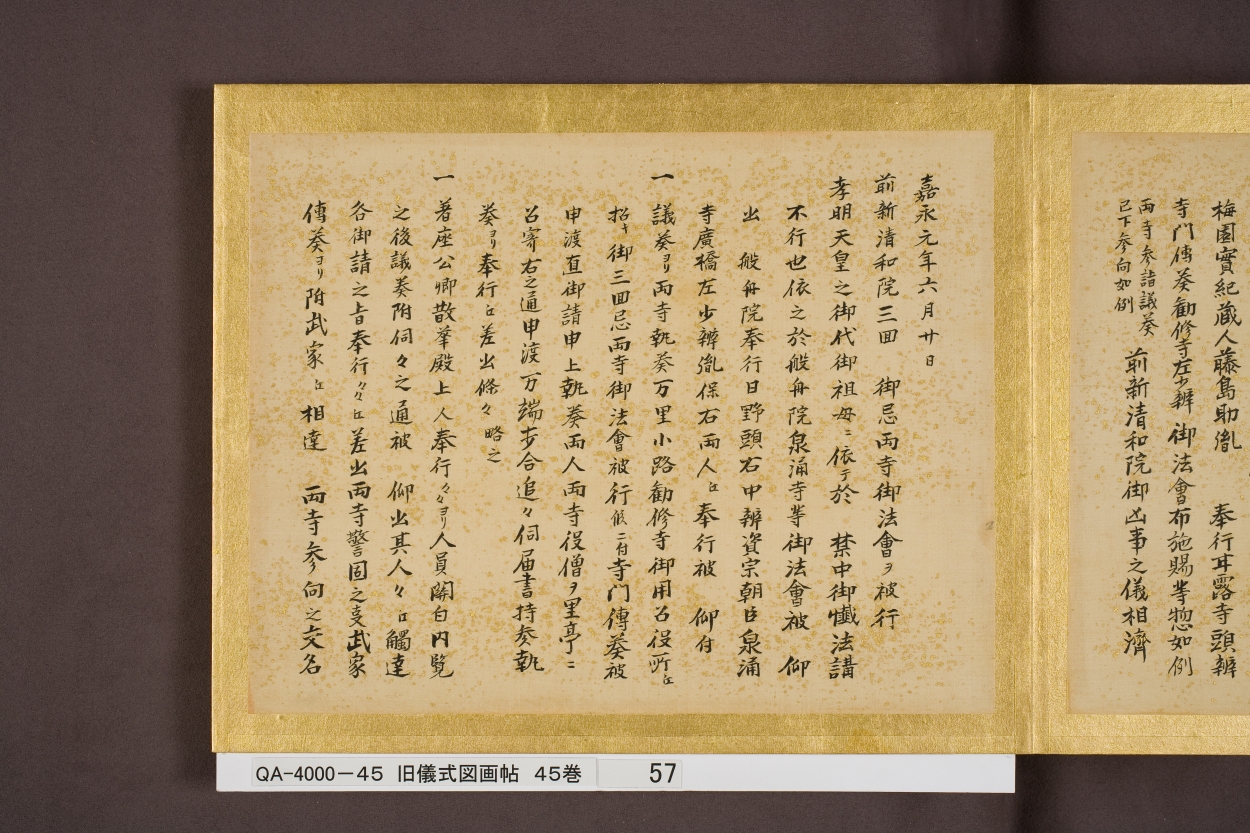 梅園實紀蔵人藤島助胤　奉行甘露寺頭辨
寺門傳奏勧修寺左少辨御法會布施賜等惣如例
両寺参詣議奏
已下参向如例
前新清和院御凶事之儀相濟
嘉永元年六月廿日
前新清和院三回　御忌両寺御法會ヲ被行
孝明天皇之御代御祖母ニ依テ於　禁中御懺法講
不行也依之於般舟院泉涌寺等御法會被　仰
出　般舟院奉行日野頭右中辨資宗朝臣泉涌
寺廣橋左少辨胤保右両人江奉行被　仰付
一　議奏ヨリ両寺執奏万里小路勧修寺御用召役所江
招キ御三回忌両寺御法會被行候ニ付寺門傳奏被
申渡直御請申上執奏両人両寺役僧ヲ里亭ニ
召寄右之通申渡万端歩合追々伺届書持参執
奏ヨリ奉行江差出條々略之
一　着座公卿散華殿上人奉行々々ヨリ人員関白内覧
之後議奏附伺々之通被　仰出其人々江觸達
各御請之旨奉行々々江差出両寺警固之支武家
傳奏ヨリ附武家江相達　両寺参向之交名
QA-4000－45　旧儀式図画帖　45巻　57